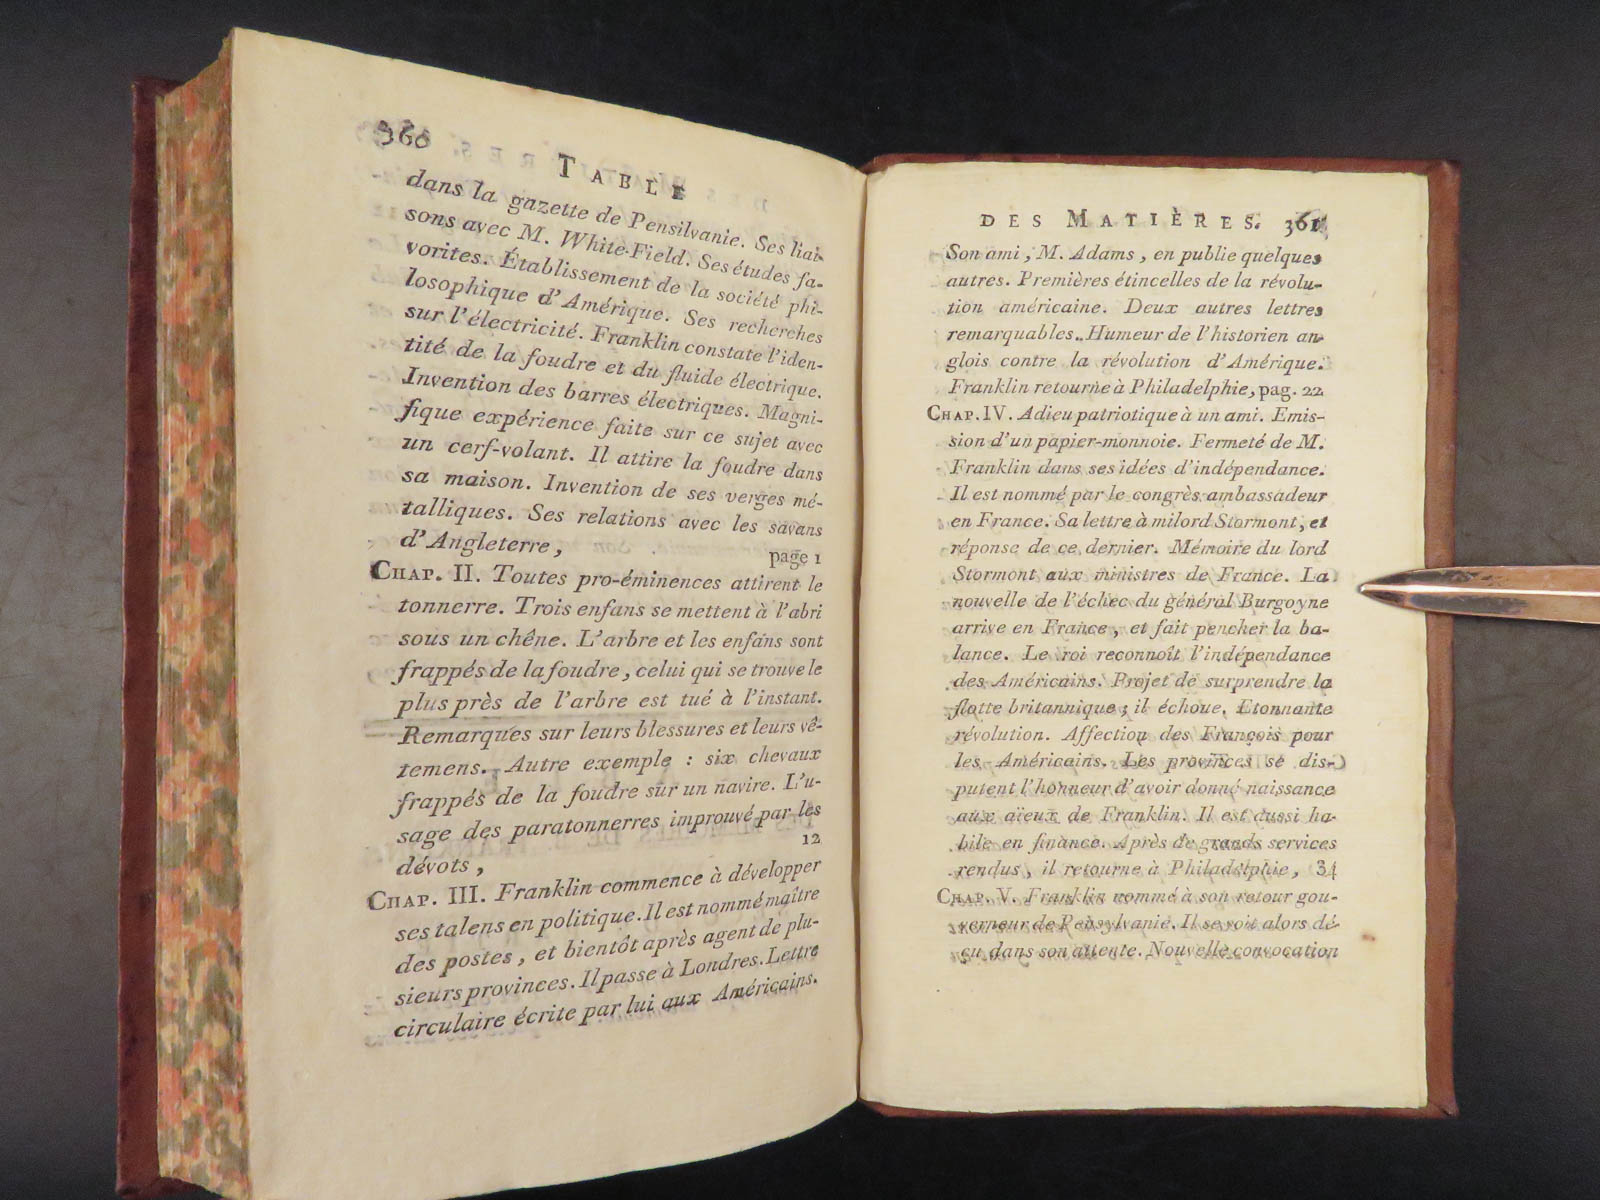 360
TABLE
dans la gazette de Pensilvanie. Ses liai-
sons avec M. White-Field. Ses études fa-
vorites. Établissement de la société phi-
losophique d'Amérique. Ses recherches
sur l'électricité. Franklin constate l'iden-
tité de la foudre et du fluide électrique.
Invention des barres électriques. Magni-
fique expérience faite sur ce sujet avec
un cerf-volant. Il attire la foudre dans
sa maison. Invention de ses verges mé-
talliques. Ses relations avec les savans
d'Angleterre, page 1
CHAP. II. Toutes pro-éminences attirent le
tonnerre. Trois enfans se mettent à l'abri
sous un chêne. L'arbre et les enfans sont
frappés de la foudre, celui qui se trouve le
plus près de l'arbre est tué à l'instant.
Remarques sur leurs blessures et leurs vê-
temens. Autre exemple : six chevaux
frappés de la foudre sur un navire. L'u-
sage des paratonnerres improuvé par les
dévots, 12
CHAP. III. Franklin commence à développer
ses talens en politique. Il est nommé maître
des postes, et bientôt après agent de plu-
sieurs provinces. Il passe à Londres. Lettre
circulaire écrite par lui aux Américains.
DES MATIÈRES. 361
Son ami, M. Adams, en publie quelques
autres. Premières étincelles de la révolu-
tion américaine. Deux autres lettres
remarquables. Humeur de l'historien an-
glois contre la révolution d'Amérique.
Franklin retourne à Philadelphie, pag. 22
CHAP. IV. Adieu patriotique à un ami. Emis-
sion d'un papier-monnoie. Fermeté de M.
Franklin dans ses idées d'indépendance.
Il est nommé par le congrès ambassadeur
en France. Sa lettre à milord Stormont, et
réponse de ce dernier. Mémoire du lord
Stormont aux ministres de France. La
nouvelle de l'échec du général Burgoyne
arrive en France, et fait pencher la ba-
lance. Le roi reconnoît l'indépendance
des Américains. Projet de surprendre la
flotte britannique ; il échoue. Etonnante
révolution. Affection des François pour
les Américains. Les provinces se dis-
putent l'honneur d'avoir donné naissance
aux aïeux de Franklin. Il est aussi ha-
bile en finance. Après de grands services
rendus, il retourne à Philadelphie, 34
CHAP. V. Franklin nommé à son retour gou-
verneur de Pensylvanie. Il se voit alors dé-
çu dans son attente. Nouvelle convocation